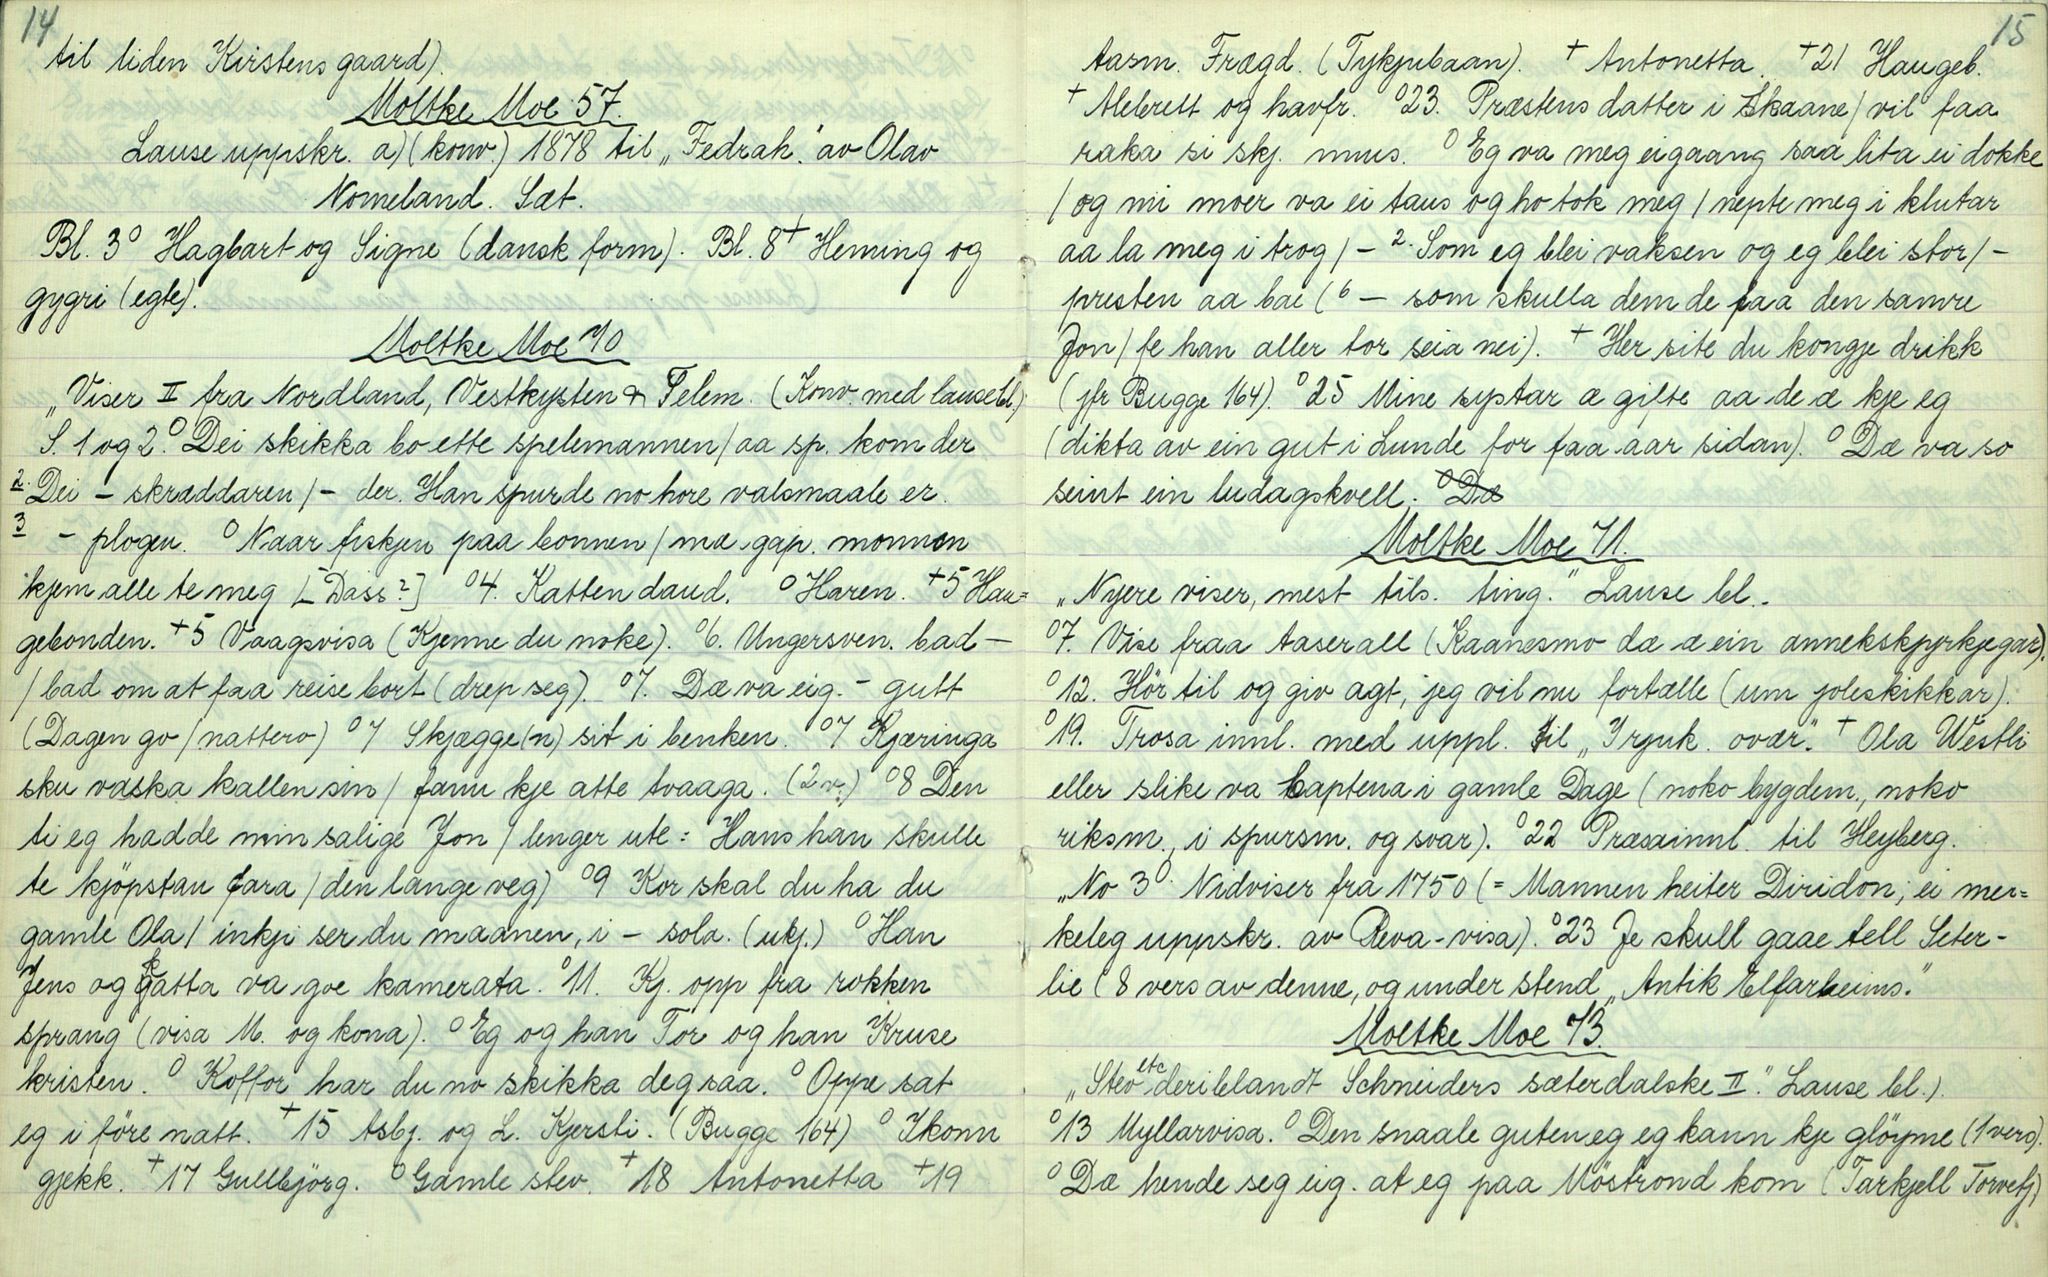 14
til liden Kirstens gaard).
Moltke Moe 57.
Lause uppskr. a) (konv.) 1878 til „Fedrah." av Olav
Nomeland. Sæt.
Bl. 3 o Hagbart og Signe (dansk form). Bl. 8 + Heming og
gygri (egte).
Moltke Moe 70
„Viser II fra Nordland, Vestkysten & Telem. (Konv. med lause bl.)
S. 1 og 2. o Dei skikka bo ette spelemannen / aa sp. kom der
2. Dei – skræddaren / – der. Han spurde no hore valsmaale er.
3 – plogen. o Naar fiskjen paa bonnen / mæ gap. monnen
kjem alle te meg [Dass?] o 4. Katten daud. o Haren. + 5 Hau=
gebonden. + 5 Vaagsvisa (Kjenne du noke). o 6. Ungersven. bad –
/ bad om at faa reise bort (drep seg). o 7. Dæ va eig. – gutt
(Dagen go / nattero) o 7 Skjægge(n) sit i benken. o 7 Kjæringa
sku vaska kallen sin / fann kje atte tvaaga. (2 v.) o 8 Den
ti eg hadde min salige Jon / lenger ute: Hans han skulle
te kjöpstau fara / den lange veg) o 9 Kor skal du ha du
gamle Ola / inkji ser du maanen, i – sola. (ukj.) o Han
Jens og Gatta va goe kamerata. o 11. Kj. opp fra rokken
sprang (visa M. og kona). o Eg og han Tor og han Kruse
kristen. o Koffor har du no skikka deg saa. o Oppe sat
eg i före natt. + 15 Asbj. og L. Kjersti. (Bugge 164) o Ikonn
gjekk. + 17 Gullbjörg. o Gamle stev. + 18 Antonetta + 19
15
Aasm. Frægd. (Tykjubaan). + Antonetta. + 21 Haugeb.
+ Alebrett og havfr. o 23. Præstens datter i Skaane / vil faa
raka si skj. mus. o Eg va meg eigaang saa lita ei dokke
/ og mi moer va ei taus og ho tok meg / nepte meg i klutar
aa la meg i trog / – 2. Som eg blei vaksen og eg blei stor / –
presten aa bae (6 – som skulla dem de faa den samre
Jon / fe han aller tor seia nei). + Her site du kongje drikk
(jfr Bugge 164). o 25 Mine systar æ gifte aa de æ kje eg
(dikta av ein gut i Lunde for faa aar sidan). o Dæ va so
seint ein ludagskvell. o Dæ
Moltke Moe 71.
„Nyere viser, mest tils. ting." Lause bl.
o 7. Vise fraa Aaserall (Kaanesmo dæ æ ein annekskyrkjegar).
o 12. Hör til og giv agt, jeg vil nu fortælle (um joleskikkar).
o 19. Trosa innl. med uppl. til „Irjuk. ovær." + Ola Westli
eller slike va Captena i gamle Dage (noko bygdem., noko
riksm., i spursm. og svar). o 22 Præsainnl. til Heyberg.
„No 3 o. Nidviser fra 1750 (= Mannen heiter Diridon; ei mer=
keleg uppskr. av Reva-visa). o 23 Je skull gaae tell Seter-
lie (8 vers av denne, og under stend „Antik Elfarheims."
Moltke Moe 73.
„Stev etc deriblandt Schneiders sæterdalske II." Lause bl.).
o 13 Myllarvisa. o Den snaale guten eg eg kann kje glöyme (1 vers).
o Dæ hende seg eig. at eg paa Möstrond kom (Tarkjell Torvetj)